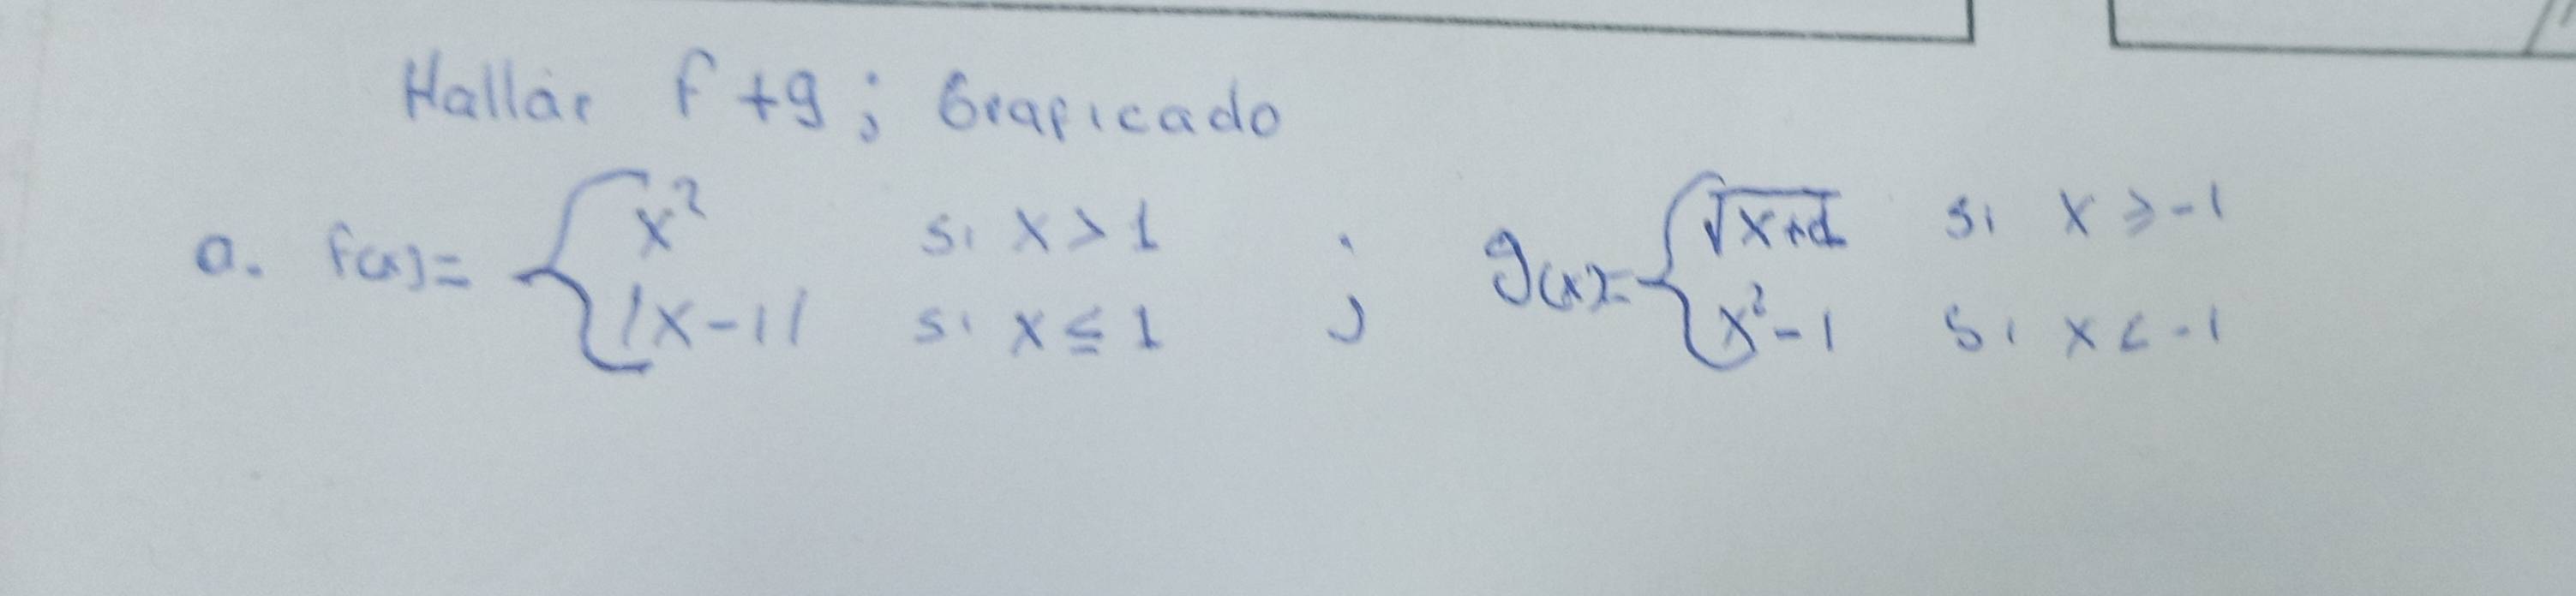 Hallar f+g; Graficado
a. f(x)= { x² si x > 1 ; g(x)= { √x+1 si x ⩾ -1
|x-1| si x ≤ 1 x²-1 si x < -1